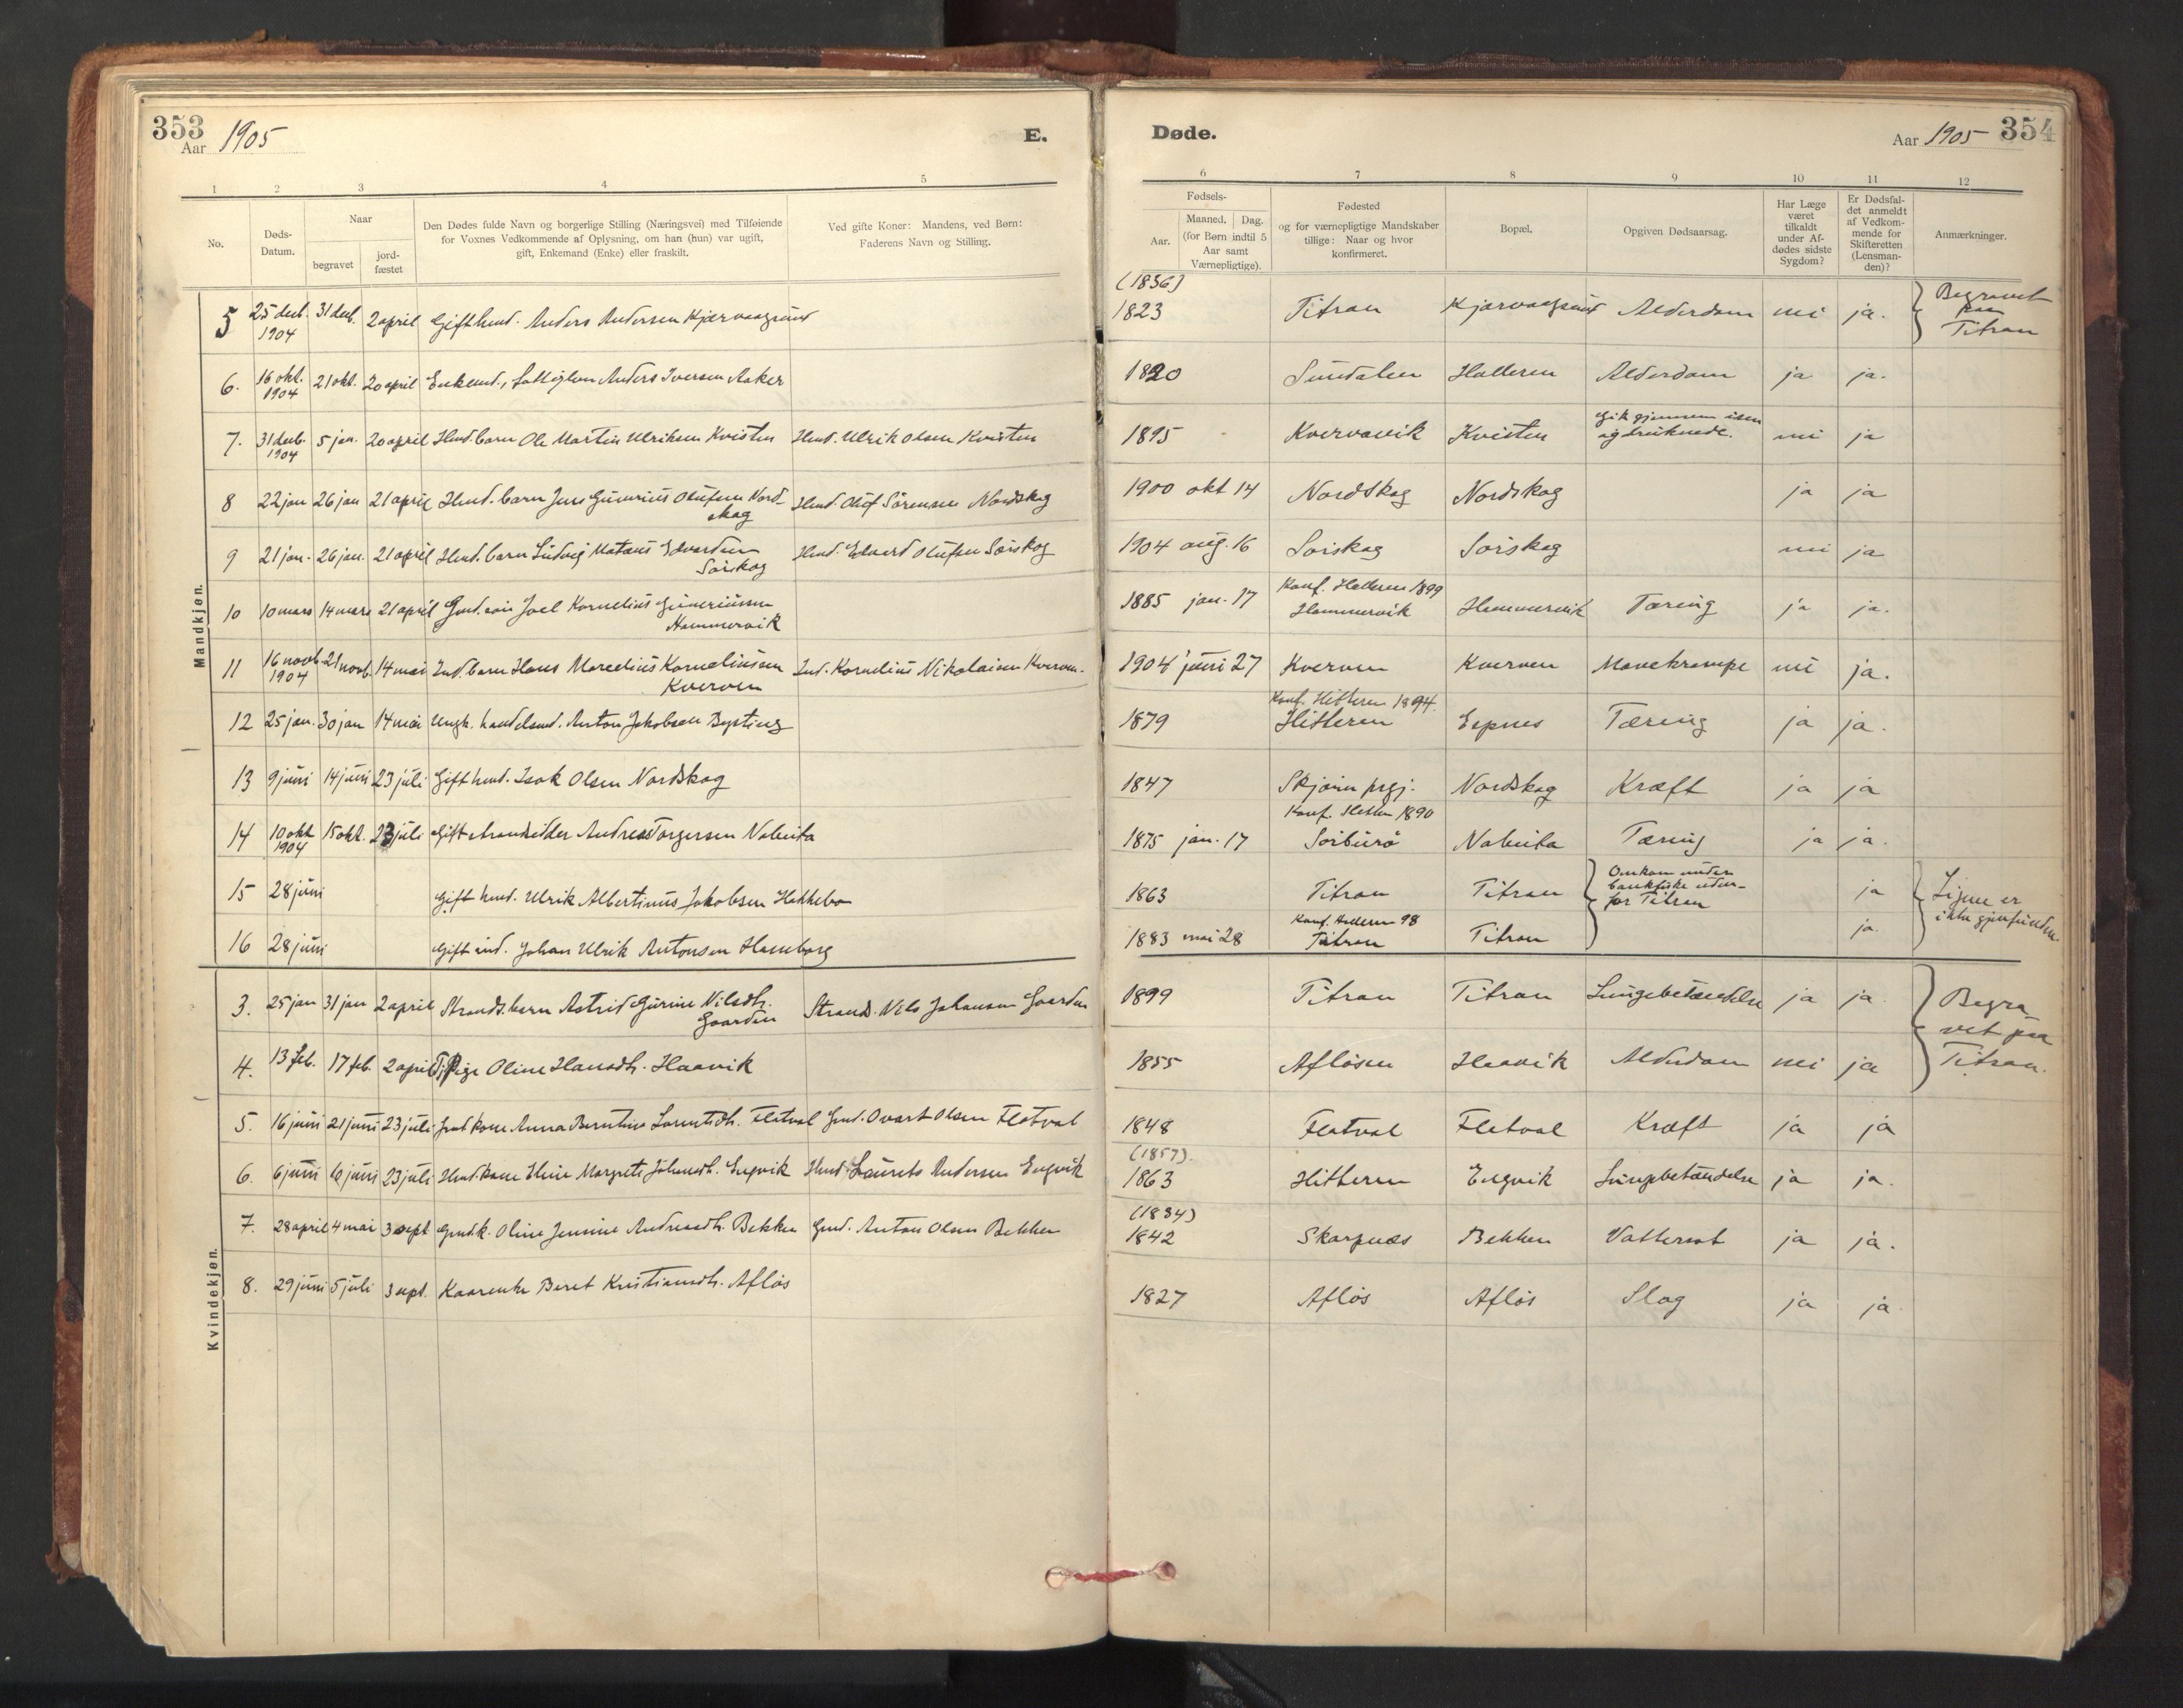 353
Aar 1905
E.
1 2 3 4 5
No.
Døds-
Datum.
Naar
begravet
jord-
fæstet
Den Dødes fulde Navn og borgerlige Stilling (Næringsvei) med Tilføiende
for Voxnes Vedkommende af Oplysning, om han (hun) var ugift,
gift, Enkemand (Enke) eller fraskilt.
Ved gifte Koner: Mandens, ved Børn:
Faderens Navn og Stilling.
Mandkjøn.
5 25 decb. 1904 31 decb. 2 april Gift husmd. Anders Andersen Kjærvaagsund
6. 16 okt. 1904 21 okt. 20 april Enkemd., Anders Iversen Aaker
7. 31 decb. 1904 5 jan. 20 april Husmd. barn Ole Martin Ulriksen Kvisten Husmd. Ulrik Olsen Kvisten
8 22 jan 26 jan 21 april Husmd. barn Jens Gunerius Olufsen Nord-
skag Husmd. Oluf Sörensen Nordskag
9 21 jan. 26 jan. 21 april Husmd. barn Ludvig Mataus Edvardsen
Sörskag Husmd. Edvard Olufsen Sörskag
10 10 mars 14 mars 21 april Gmd. sön Joel Kornelius Guneriussen
Hammervik
11 16 novb. 1904 21 novb. 14 mai Ind. barn Hans Marcelius Korneliussen
Kverven Ind. Kornelius Nikolaisen Kverven.
12 25 jan. 30 jan 14 mai Ungk. handelsmd. Anton Jakobsen Bysting
13 9 juni 14 juni 23 juli Gift husmd. Isak Olsen Nordskag
14 10 okt 1904 15 okt. 23 juli Gift strandsidder Andreas Torgersen Nabeita
15 28 juni Gift husmd. Ulrik Albertinus Jakobsen Hakkebo
16 28 juni Gift ind. Johan Ulrik Antonsen Hamborg
Kvindekjøn.
3. 25 jan 31 jan 2 april Strands. barn Astrid Gurine Nilsdtr.
Gaarden Strands. Nils Johansen Gaarden
4. 13 feb. 17 feb. 2 april Pige Oline Hansdtr. Haavik
5. 16 juni 21 juni 23 juli Gmd. kone Anna Berntine Lorentsdtr. Flatval Gmd. Ovart Olsen Flatval
6. 6 juni 10 juni 23 juli Husmd. kone Margrete Johansdtr. Engvik Husmd. Laurits Andersen Engvik
7. 28 april 4 mai 3 sept Gmd. k. Oline Jensine Andreasdtr. Bekken Gmd. Anton Olsen Bekken
8. 29 juni 5 juli 3 sept. Kaarenke Beret Kristiansdtr. Aflös
Døde.
Aar 1905
354
6 7 8 9 10 11 12
Fødsels-
Aar.
Maaned. Dag.
(for Børn indtil 5
Aar samt
Værnepligtige).
Fødested
og for værnepligtige Mandskaber
tillige: Naar og hvor
konfirmeret.
Bopæl.
Opgiven Dødsaarsag.
Har Læge
været
tilkaldt
under Af-
dødes sidste
Sygdom?
Er Dødsfal-
det anmeldt
af Vedkom-
mende for
Skifteretten
(Lensman-
den)?
Anmærkninger.
(1836)
1823 Titran Kjærvaagsund Alderdom nei ja. Begravet
paa
Titran
1820 Sundalen Halleren Alderdom ja ja.
1895 Kvervavik Kvisten Gik gjennem isen
og druknede. nei ja
1900 okt 14 Nordskag Nordskag ja ja
1904 aug. 16 Sörskag Sörskag nei ja
Konf. Halleren 1899
1885 jan. 17 Hammervik Hammervik Tæring ja ja.
1904 juni 27 Kverven Kverven Mavekrampe nei ja.
Konf. Hitteren 1894.
1879 Hitteren Espnes Tæring ja ja.
1847 Skjörn prgj. Nordskag Kræft ja ja
Konf. 1890
1875 jan. 17 Sörburö Nabeita Tæring ja ja.
1863 Titran Titran Omkom under
bankfiske uden-
for Titran ja Ligene er
ikke gjenfundne.
Konf. Halleren 98
1883 mai 28 Titran Titran ja.
1899 Titran Titran Lungebetændelse ja ja Begra-
vet paa
Titran.
1855 Aflösen Haavik Alderdom nei ja
1848 Flatval Flatval Kræft ja ja
(1857).
1863 Hitteren Engvik Lungebetændelse ja ja.
(1834)
1842 Skarpnæs Bekken Vattersot ja ja.
1827 Aflös Aflös Slag ja ja